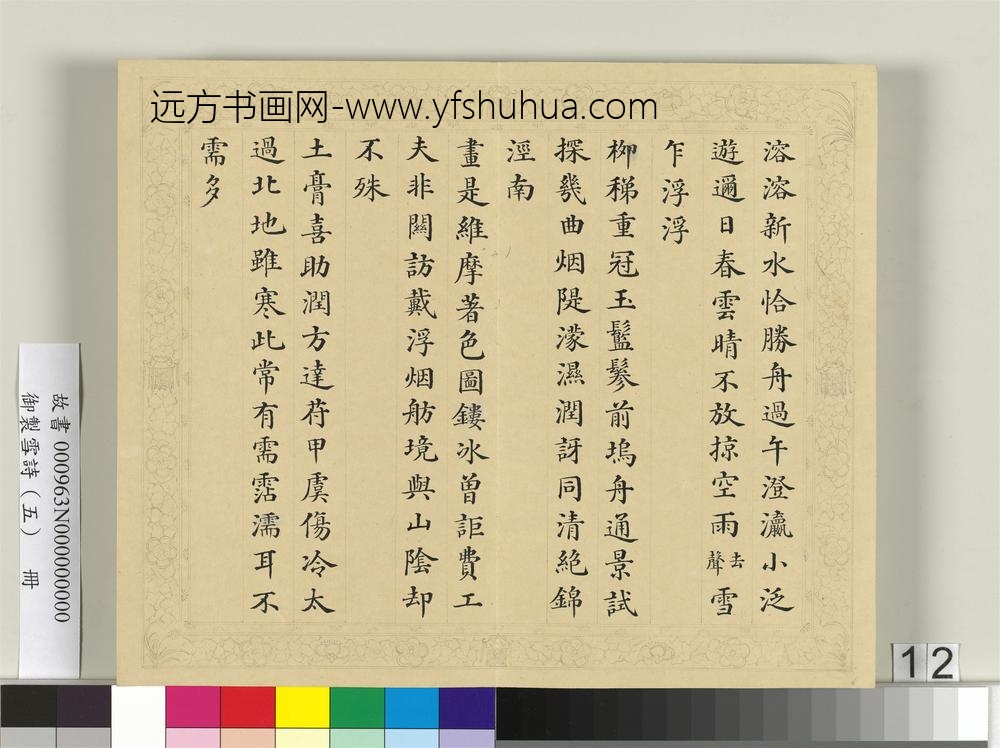 远方书画网-www.yfshuhua.com
溶溶新水恰勝舟過午澄瀛小泛
遊邇日春雲晴不放掠空雨去聲雪
乍浮浮
栁稊重冠玉鬖髿前塢舟通景試
探幾曲烟隄濛濕潤訝同清絶錦
溼南
畫是維摩著色圖鏤冰曾詎費工
夫非關訪戴浮烟舫境與山陰却
不殊
土膏喜助潤方達苻甲虞傷冷太
過北地雖寒此常有需霑濡耳不
需多
故書 000963N000000000
御製雪詩（五） 冊
12